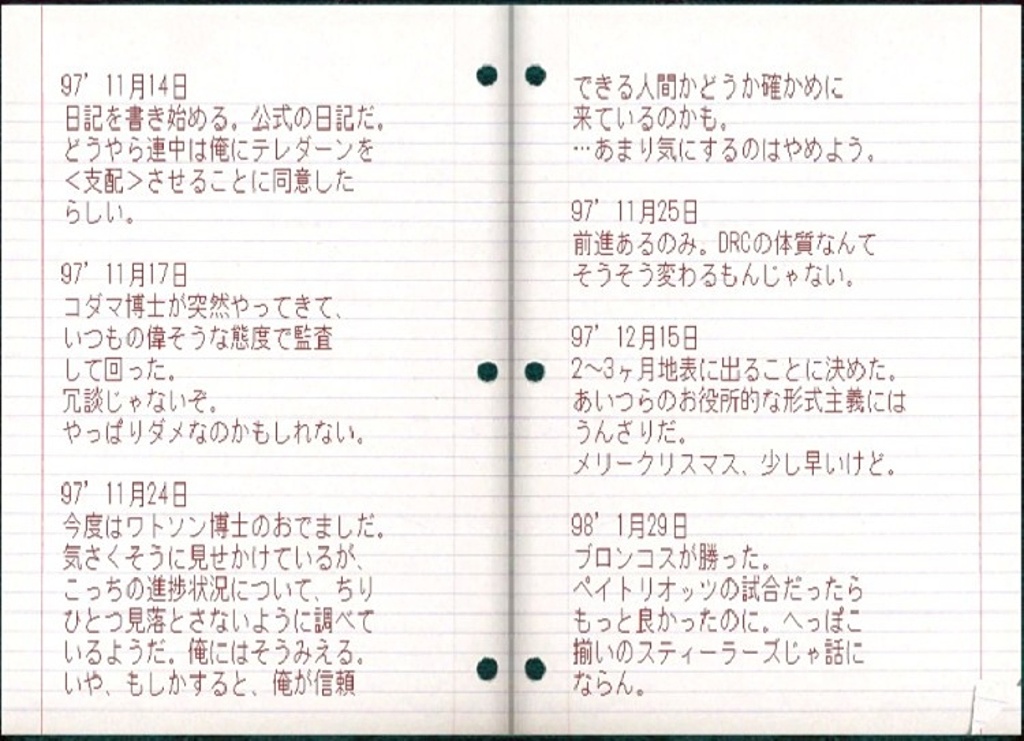 97’ 11月14日
日記を書き始める。公式の日記だ。
どうやら連中は俺にテレダーンを
＜支配＞させることに同意した
らしい。
97’ 11月17日
コダマ博士が突然やってきて、
いつもの偉そうな態度で監査
して回った。
冗談じゃないぞ。
やっぱりダメなのかもしれない。
97’ 11月24日
今度はワトソン博士のおでましだ。
気さくそうに見せかけているが、
こっちの進捗状況について、ちり
ひとつ見落とさないように調べて
いるようだ。俺にはそうみえる。
いや、もしかすると、俺が信頼
できる人間かどうか確かめに
来ているのかも。
…あまり気にするのはやめよう。
97’ 11月25日
前進あるのみ。DRCの体質なんて
そうそう変わるもんじゃない。
97’ 12月15日
2～3ヶ月地表に出ることに決めた。
あいつらのお役所的な形式主義には
うんざりだ。
メリークリスマス、少し早いけど。
98’ 1月29日
ブロンコスが勝った。
ペイトリオッツの試合だったら
もっと良かったのに。へっぽこ
揃いのスティーラーズじゃ話に
ならん。